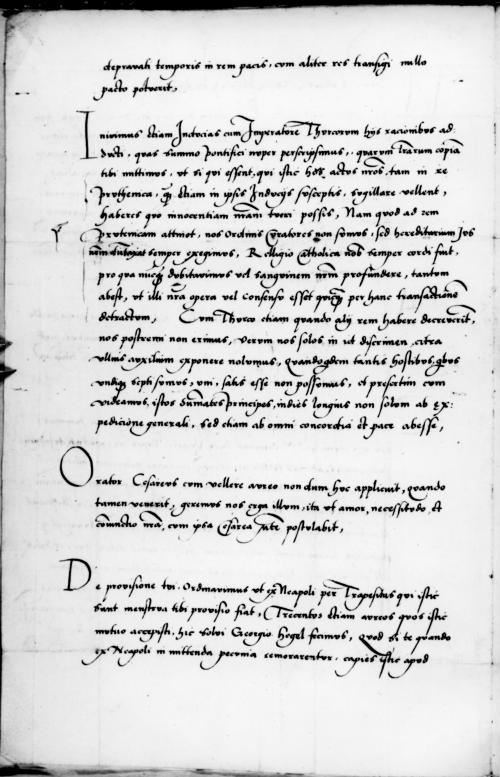 depravati temporis in rem pacis, cum aliter res transigi nullo
pacto potuerit,
Inivimus etiam Inducias cum Imperatore Thurcorum hijs racionibus ad:
ducti, quas summo Pontifici nuper perscripsimus, quarum l̄rarum copiā
tibi mittimus, ut si qui essent, qui istic hos actus nr̄os, tam in re
Pruthenica, q̄ȝ etiam in ipsis Inducijs susceptis, sugillare vellent,
haberes quo innocentiam nr̄am tueri possis, Nam quod ad rem
Prutenicam attinet, nos Ordinis Curatores non sumus, sed hereditarium Jus
nr̄m semper exegimus, Relligio Catholica nob̄ semper cordi fuit,
pro qua nuncq̄ȝ dubitavimus vel sanguinem nr̄m profundere, tantum
abest, ut illi nr̄a opera vel consensu esset quicq̄ȝ per hanc transactionē
detractum, Cum Thurco etiam quando alij rem habere decreverīt,
nos postremi non erimus, verum nos solos in ut discrimen, citra
ullius auxilium exponere nolumus, quandoq̄dem tantis hostibus q̄bus
undiq̄ȝ septi sumus, uni, satis esse non possumus, et presertim cum
videamus, istos Christianos Principes, indies longius non solum ab Ex:
pedicione generali, sed etiam ab omni concordia et pace abesse,
Orator Cesareus cum vellere aureo non dum huc applicuit, quando
tamen venerit, geremus nos erga illum, ita ut amor, necessitudo et
coniunctio nr̄a, cum ipsa Cesarea Mte postulabit,
De provisione tui, Ordinavimus ut ex Neapoli per Trapesitas qui istic
sunt menstrua tibi provisio fiat, Trecentos etiam aureos quos istic
mutuo accepisti, hic solvi Georgio Hegel fecimus, Quod si te quando
ex Neapoli in mittenda pecunia remorarentur, capies istic apud